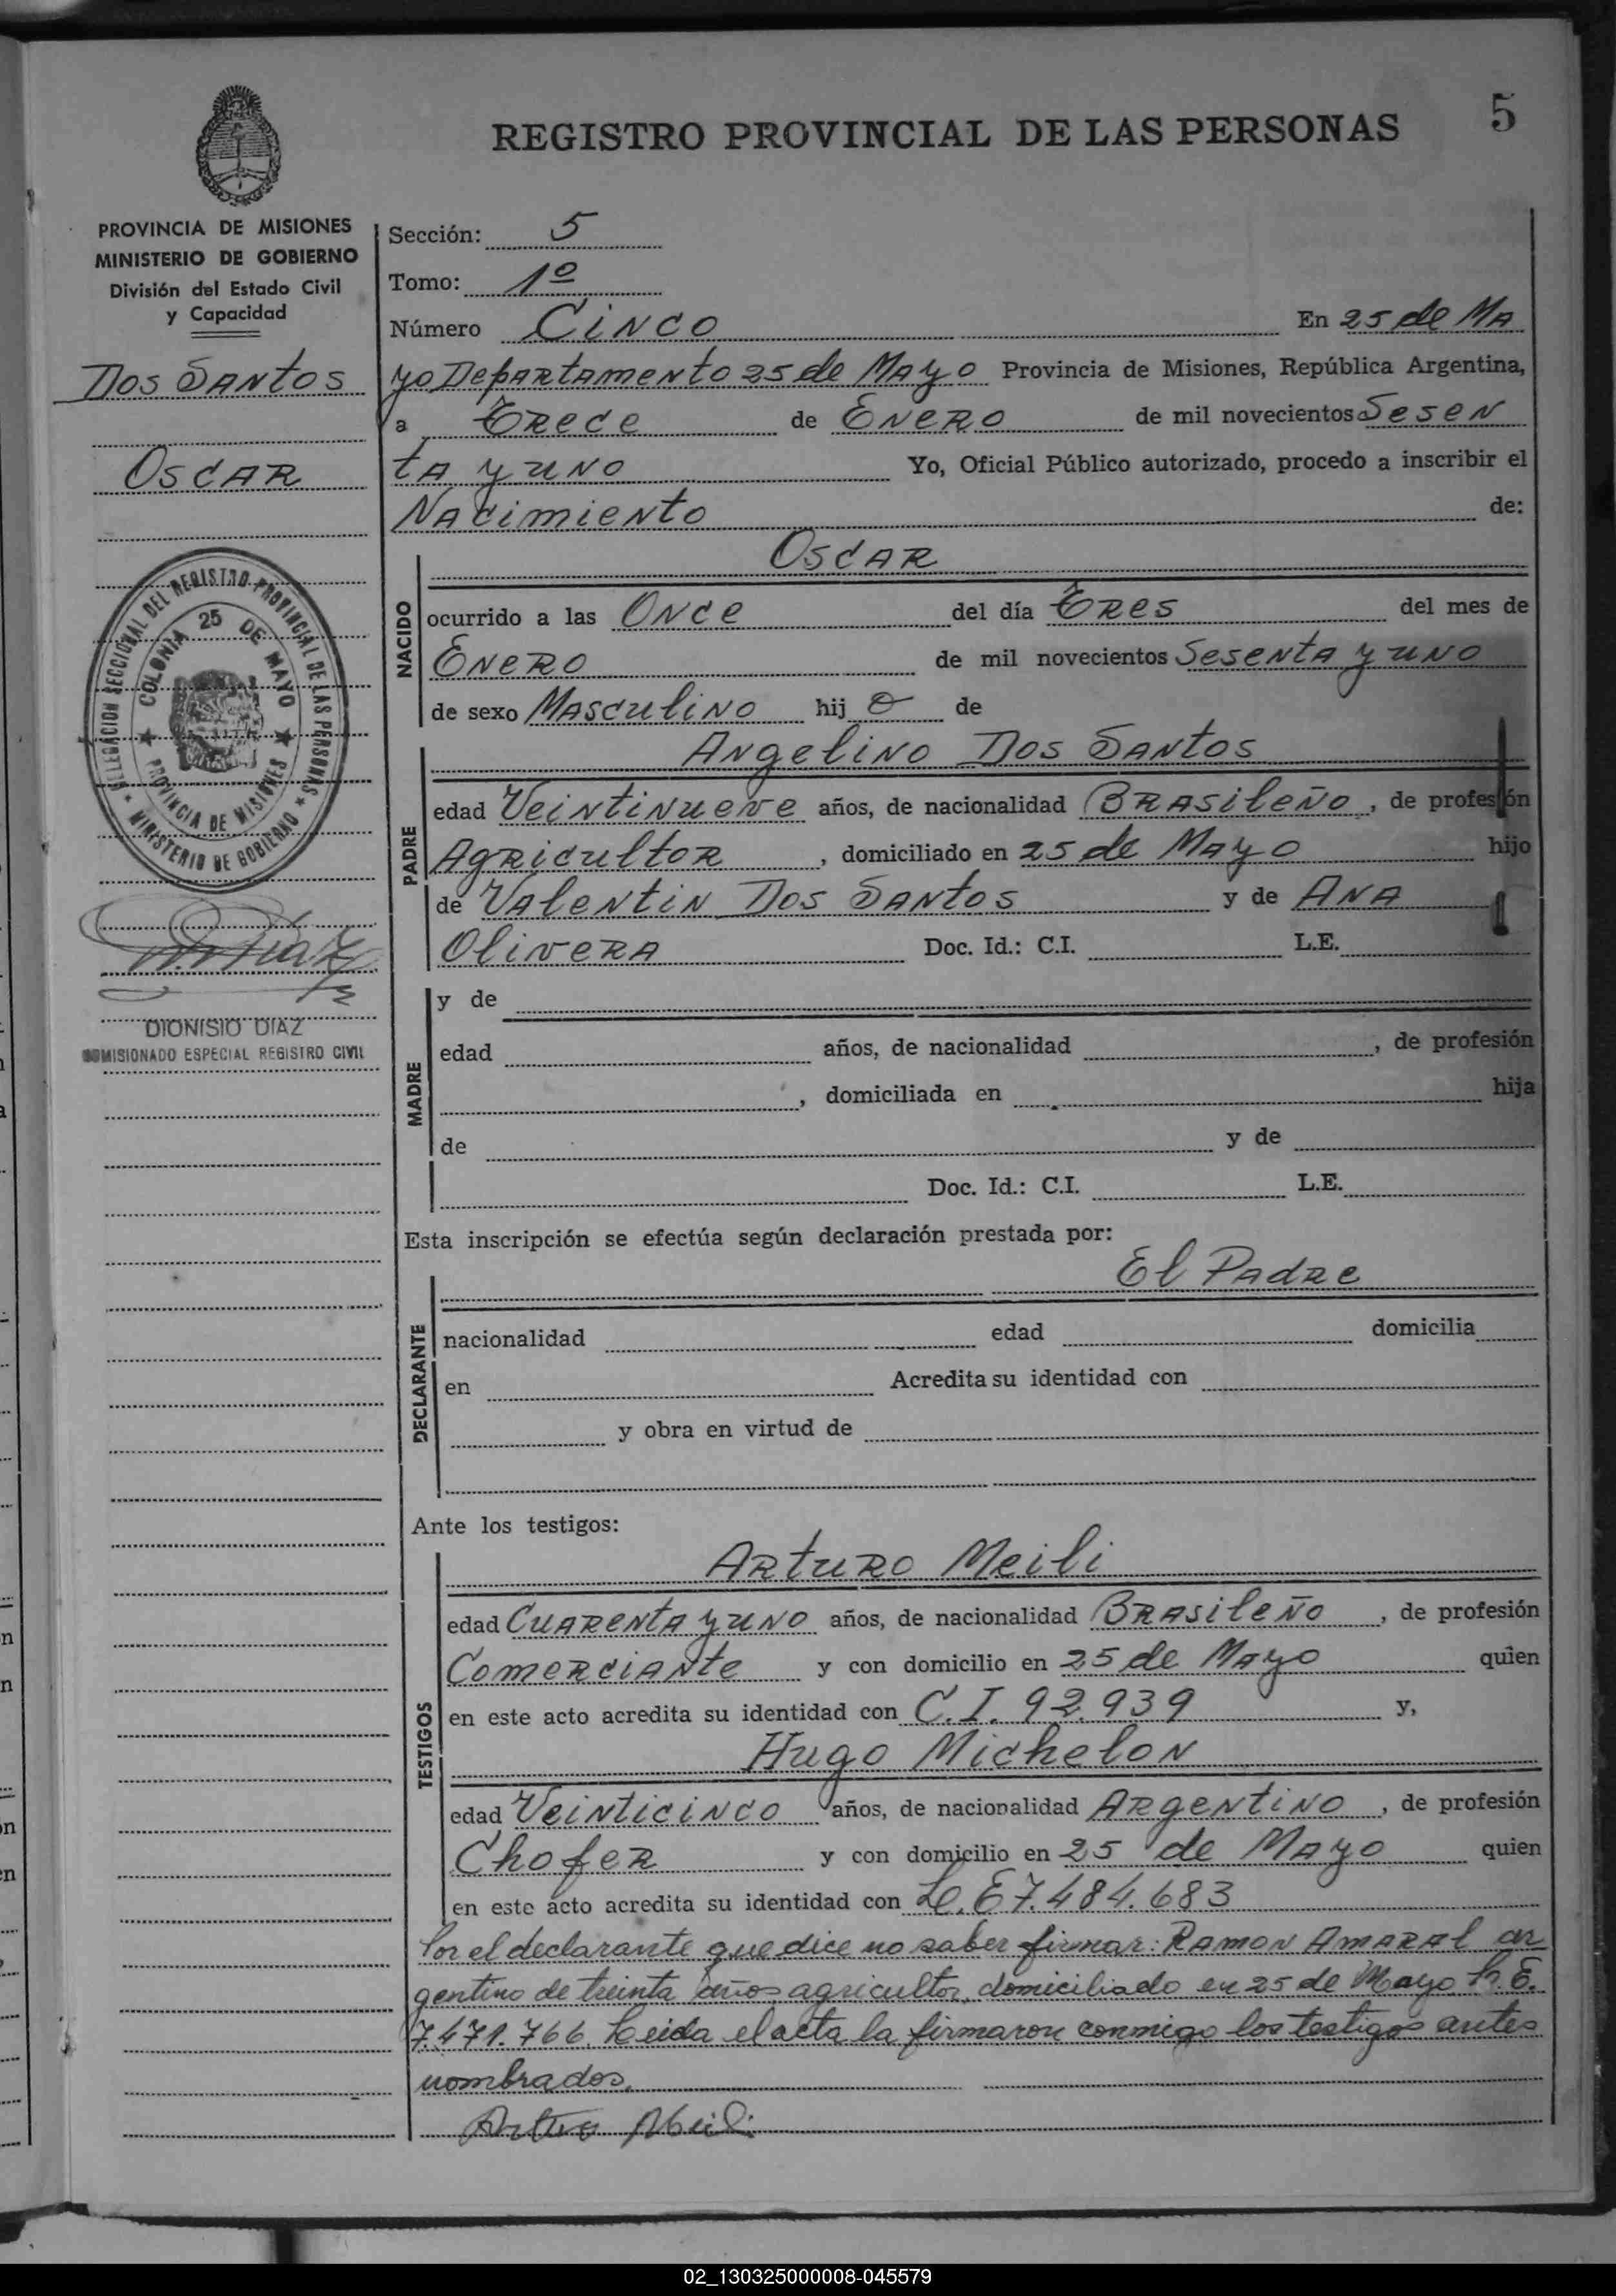 REGISTRO PROVINCIAL DE LAS PERSONAS
5
PROVINCIA DE MISIONES
MINISTERIO DE GOBIERNO
División del Estado Civil
y Capacidad
Dos Santos
Oscar
DELEGACION SECCIONAL DEL REGISTRO PROVINCIAL DE LAS PERSONAS
★ MINISTERIO DE GOBIERNO ★
COLONIA 25 DE MAYO
★ PROVINCIA DE MISIONES ★
DIONISIO DIAZ
COMISIONADO ESPECIAL REGISTRO CIVIL
Sección: 5
Tomo: 1º
Número Cinco En 25 de Ma
yo Departamento 25 de Mayo Provincia de Misiones, República Argentina,
a Trece de Enero de mil novecientos Sesen
ta y uno Yo, Oficial Público autorizado, procedo a inscribir el
Nacimiento de:
NACIDO
Oscar
ocurrido a las Once del día Tres del mes de
Enero de mil novecientos Sesenta y uno
de sexo Masculino hij o de
PADRE
Angelino Dos Santos
edad Veintinueve años, de nacionalidad Brasileño, de profesión
Agricultor, domiciliado en 25 de Mayo hijo
de Valentin Dos Santos y de Ana
Olivera Doc. Id.: C.I. L.E.
MADRE
y de
edad años, de nacionalidad , de profesión
, domiciliada en hija
de y de
Doc. Id.: C.I. L.E.
Esta inscripción se efectúa según declaración prestada por:
DECLARANTE
El Padre
nacionalidad edad domicilia
en Acredita su identidad con
y obra en virtud de
Ante los testigos:
TESTIGOS
Arturo Meili
edad Cuarenta y uno años, de nacionalidad Brasileño, de profesión
Comerciante y con domicilio en 25 de Mayo quien
en este acto acredita su identidad con C.I. 92.939 y,
Hugo Michelon
edad Veinticinco años, de nacionalidad Argentino, de profesión
Chofer y con domicilio en 25 de Mayo quien
en este acto acredita su identidad con L.E 7.484.683
Por el declarante que dice no saber firmar: Ramon Amaral ar
gentino de treinta años, agricultor, domiciliado en 25 de Mayo L.E.
7.471.766. Leida el acta la firmaron conmigo los testigos antes
nombrados.
Arturo Meili
02_130325000008-045579